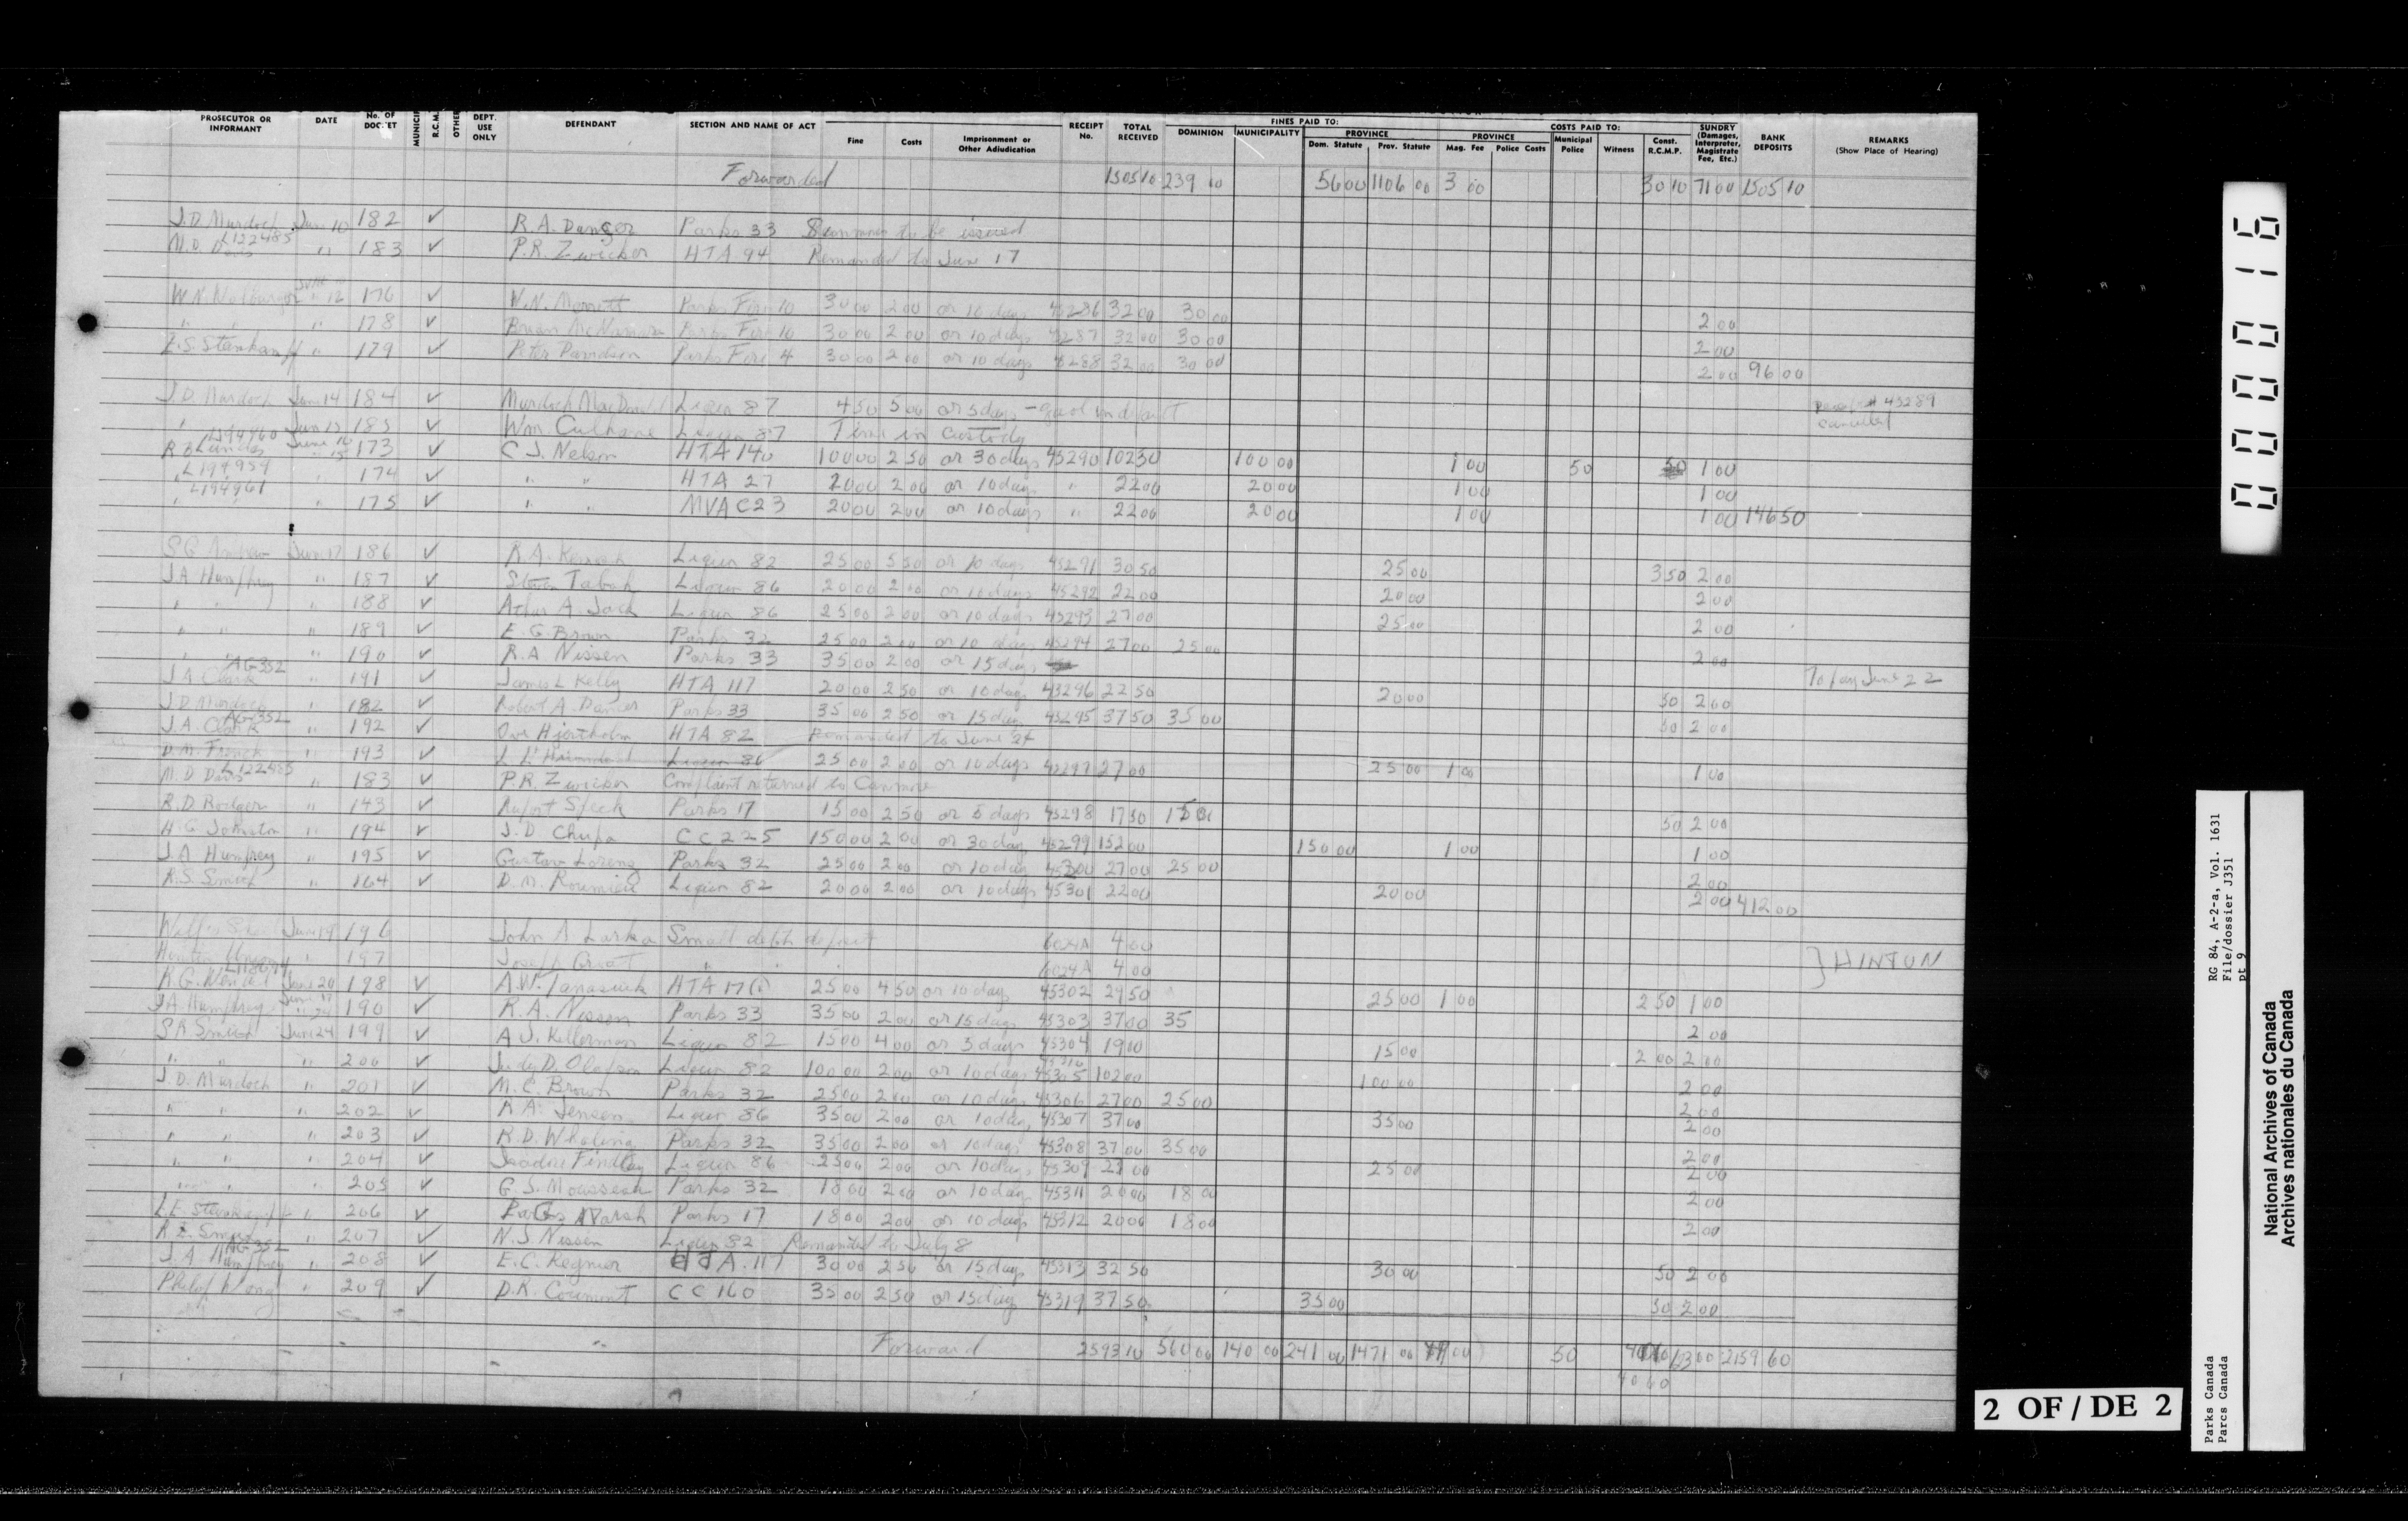 PROSECUTOR OR INFORMANT DATE No. OF DOCKET MUNICIP R.C.M. OTHE DEPT. USE ONLY DEFENDANT SECTION AND NAME OF ACT Fine Costs Imprisonment or Other Adjudication RECEIPT No. TOTAL RECEIVED FINES PAID TO: DOMINION MUNICIPALITY PROVINCE Dom. Statute Prov. Statute COSTS PAID TO: PROVINCE Mag. Fee Police Costs Municipal Police Witness Const. R.C.M.P. SUNDRY (Damages, Interpreter, Magistrate Fee, Etc.) BANK DEPOSITS REMARKS (Show Place of Hearing)
Forwarded 1505 10 239 00 56 00 1106 00 3 00 30 10 71 00 1505 10
J.D. Murdoch June 10 182 ✓ R.A. Danger Parks 33 Summons to be issued
M.D. Davis L122485 " 183 ✓ P.R. Zwicker HTA 94 Remanded to June 17
W.N. June 12 176 ✓ W.N. Parks Fire 10 30 00 2 00 or 10 days 45286 32 00 30 00 2 00
" " " 178 ✓ Brian McNamara Parks Fire 10 30 00 2 00 or 10 days 45287 32 00 30 00 2 00
" 179 ✓ Peter Parks Fire 4 30 00 2 00 or 10 days 45288 32 00 30 00 2 00 96 00
J.D. Murdoch June 14 184 ✓ Murdoch MacDonald Liquor 87 4 50 5 00 or 5 days - gaol in default Receipt # 45289 cancelled
" June 15 185 ✓ Wm. Culhane Liquor 87 Time in Custody
L194960 June 16 173 ✓ C J. Nelson HTA 140 100 00 2 50 or 30 days 45290 102 50 100 00 1 00 50 1 00
" L194959 " 174 ✓ " " HTA 27 20 00 2 00 or 10 days " 22 00 20 00 1 00 1 00
" L194961 " 175 ✓ " " MVA C23 20 00 2 00 or 10 days " 22 00 20 00 1 00 1 00 146 50
S.G. June 17 186 ✓ R.A. Liquor 82 25 00 5 50 or 10 days 45291 30 50 25 00 3 50 2 00
J.A. Humphrey " 187 ✓ Steven Tabah Liquor 86 20 00 2 00 or 10 days 45292 22 00 20 00 2 00
" " " 188 ✓ A. Jack Liquor 86 25 00 2 00 or 10 days 45293 27 00 25 00 2 00
" " " 189 ✓ E.G. Brown Parks 32 25 00 2 00 or 10 days 45294 27 00 25 00 2 00
" " " 190 ✓ R.A. Nissen Parks 33 35 00 2 00 or 15 days To pay June 22
J.A. Clark AG352 " 191 ✓ James L Kelly HTA 117 20 00 2 50 or 10 days 45296 22 50 20 00 50 2 00
J.D. Murdoch " 182 ✓ Robert A. Parks 33 35 00 2 50 or 15 days 45295 37 50 35 00 50 2 00
J.A. Clark AG352 " 192 ✓ Ove Hjortholm HTA 82 Remanded to June 24
D.M. French " 193 ✓ Liquor 86 25 00 2 00 or 10 days 45297 27 00 25 00 1 00 1 00
M.D. Davis L122485 " 183 ✓ P.R. Zwicker Complaint returned to Canmore
R.D. Rodger " 143 ✓ Parks 17 15 00 2 50 or 5 days 45298 17 50 15 00 50 2 00
H.G. Johnston " 194 ✓ J.D. Chupa CC 225 150 00 2 00 or 30 days 45299 152 00 150 00 1 00 1 00
J.A. Humfrey " 195 ✓ Gustav Lorenz Parks 32 25 00 2 00 or 10 days 45300 27 00 25 00 2 00
R.S. Smith " 164 ✓ D.M. Roumieu Liquor 82 20 00 2 00 or 10 days 45301 22 00 20 00 2 00 412 00
June 19 196 John A Larka Small debt deposit 6024A 4 00
" 197 Joseph " " " 6024A 4 00 } HINTON
R.G. June 20 198 ✓ A.W. Tanasiuk HTA 17(1) 25 00 4 50 or 10 days 45302 29 50 25 00 1 00 2 50 1 00
J.A. Humphrey June 17 " 24 190 ✓ R.A. Nissen Parks 33 35 00 2 00 or 15 days 45303 37 00 35 2 00
S.R. Smith June 24 199 ✓ A J. Kellerman Liquor 82 15 00 4 00 or 5 days 45304 19 00 15 00 2 00 2 00
" " " 200 ✓ Judy D. Olafson Liquor 82 100 00 2 00 or 10 days 45310 45305 102 00 100 00 2 00
J.D. Murdoch " 201 ✓ M.C. Brown Parks 32 25 00 2 00 or 10 days 45306 27 00 25 00 2 00
" " " 202 ✓ R.A. Jensen Liquor 86 35 00 2 00 or 10 days 45307 37 00 35 00 2 00
" " " 203 ✓ R.D. Whaling Parks 32 35 00 2 00 or 10 days 45308 37 00 35 00 2 00
" " " 204 ✓ Isadore Findlay Liquor 86 25 00 2 00 or 10 days 45309 27 00 25 00 2 00
" " " 205 ✓ G.S. Mousseau Parks 32 18 00 2 00 or 10 days 45311 20 00 18 00 2 00
" 206 ✓ Marsh Parks 17 18 00 2 00 or 10 days 45312 20 00 18 00 2 00
" 207 ✓ N.J Nissen Liquor 82 Remanded to July 8
J.A. Humfrey AG352 " 208 ✓ E.C. Regnier HTA 117 30 00 2 50 or 15 days 45313 32 50 30 00 50 2 00
Philip Wong " 209 ✓ D.R. CC 160 35 00 2 50 or 15 days 45319 37 50 35 00 50 2 00
Forward 2593 10 560 00 140 00 241 00 1471 00 50 2159 60
40 60
0 0 0 0 1 6
2 OF / DE 2
Parks Canada RG 84, A-2-a, Vol. 1631
Parcs Canada File/dossier J351
pt 9
National Archives of Canada
Archives nationales du Canada